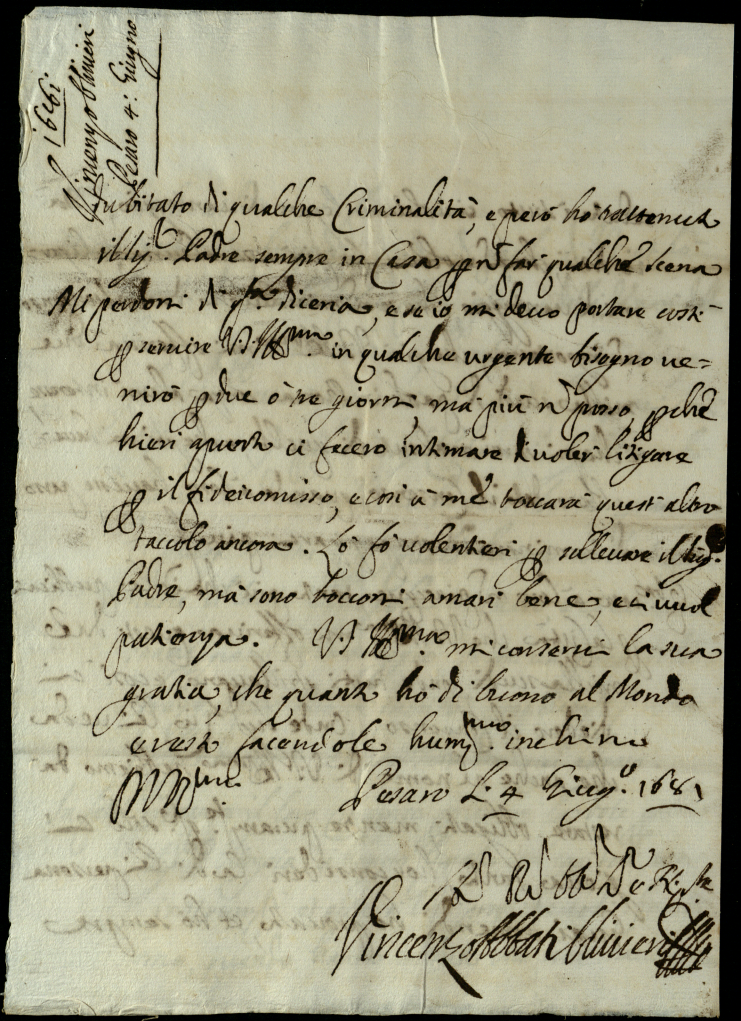 1681
Vincenzo Olivieri
Pesaro 4: Giugno
dubitato di qualche Criminalità, e però hò trattenuto
il Sig.r Padre sempre in Casa p nõ far qualche scena
Mi perdoni di q.sta diceria, e se io mi devo portare costì
p servire V.S. Ill.ma in qualche urgente bisogno ve=
nirò p due ò tre giorni, mà più nõ posso, p che
hieri apunto ci fecero intimare di voler litigare
p il fideicomisso, e così à me toccarà quest'altro
taccolo ancora. Lo fò volentieri p sollevare il Sig.r
Padre, mà sono bocconi amari bene, e ci vuol
patienza. V.S. Ill.ma mi conservi la sua
gratia, che quanto hò di buono al Mondo
e resto facendole humiliss.mo inchino
Pesaro L. 4 Giug.o 1681
Vincenzo Abbati Olivieri